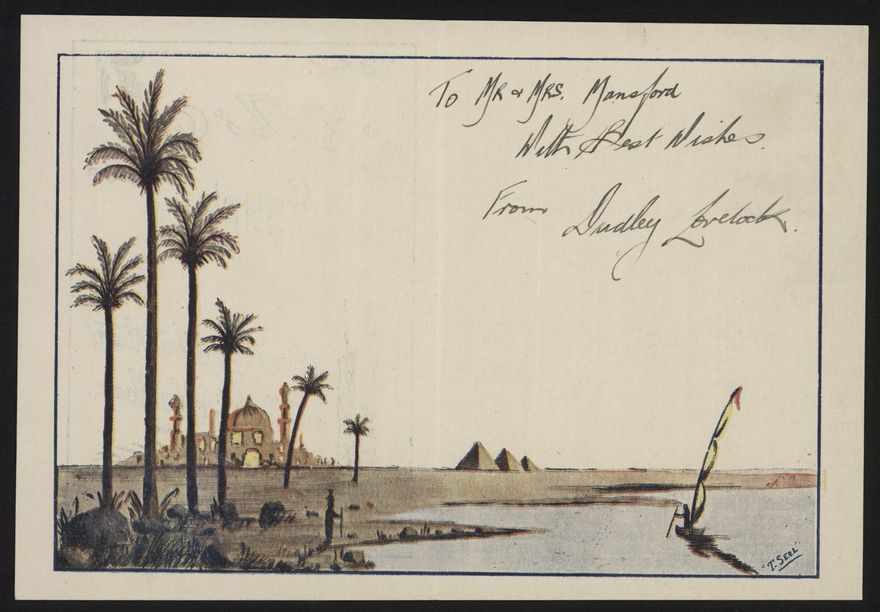 To Mr & Mrs. Mansford
With Best Wishes.
From Dudley Lovelock.
T. Seel